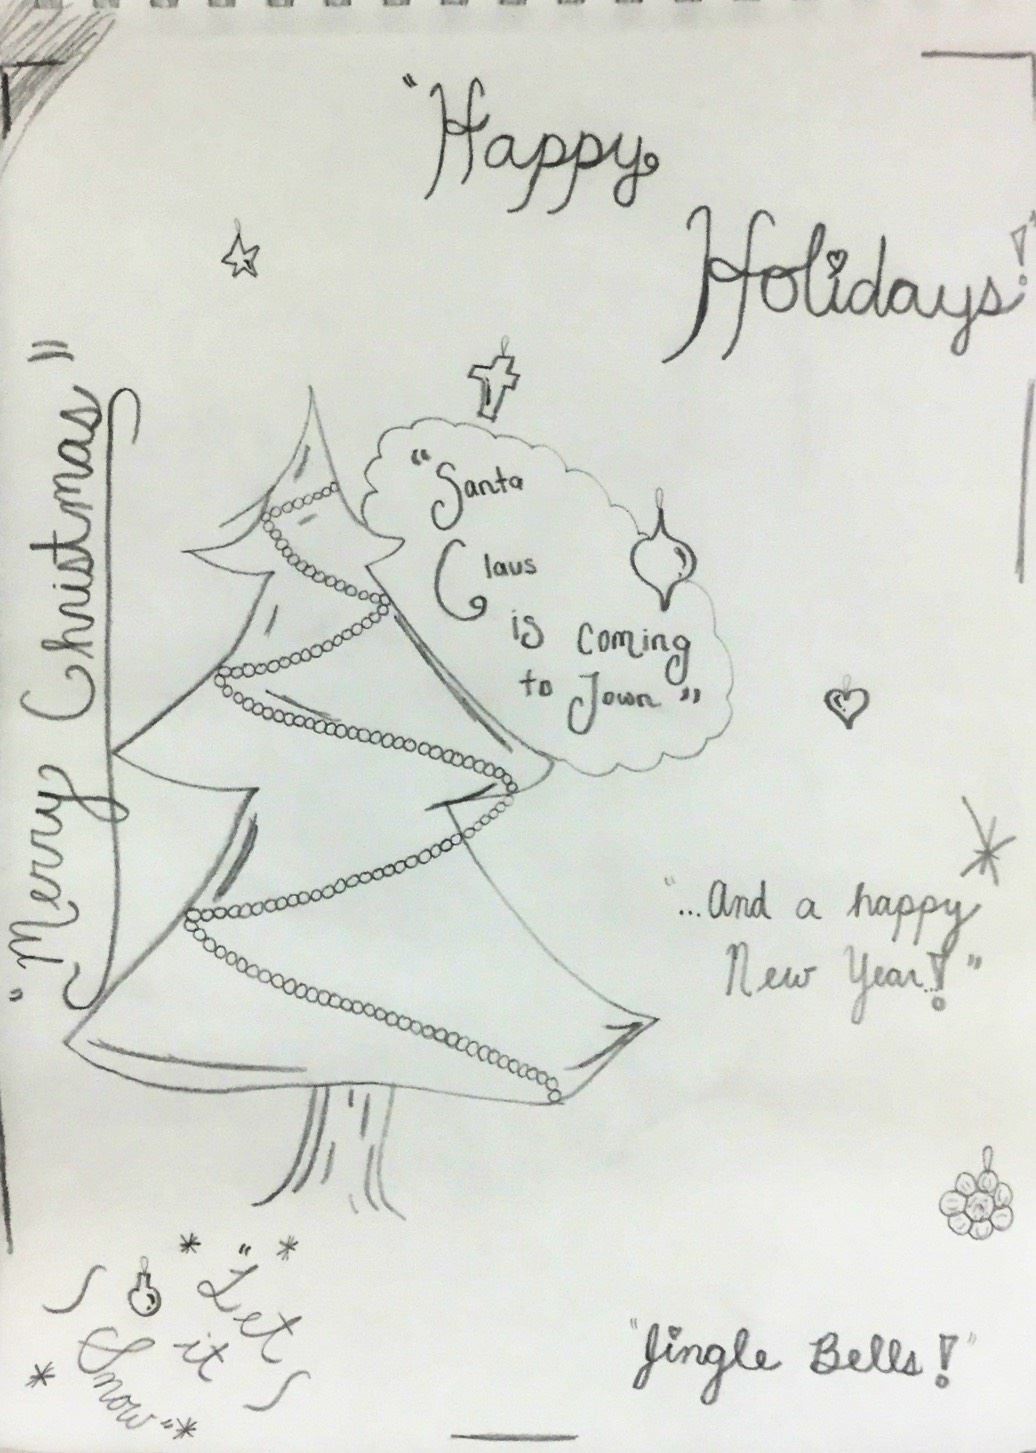 "Happy
Holidays!"
"Merry Christmas"
"Santa
Claus
is coming
to Town"
"...And a happy
New Year!"
"Let
it
Snow"
"Jingle Bells!"